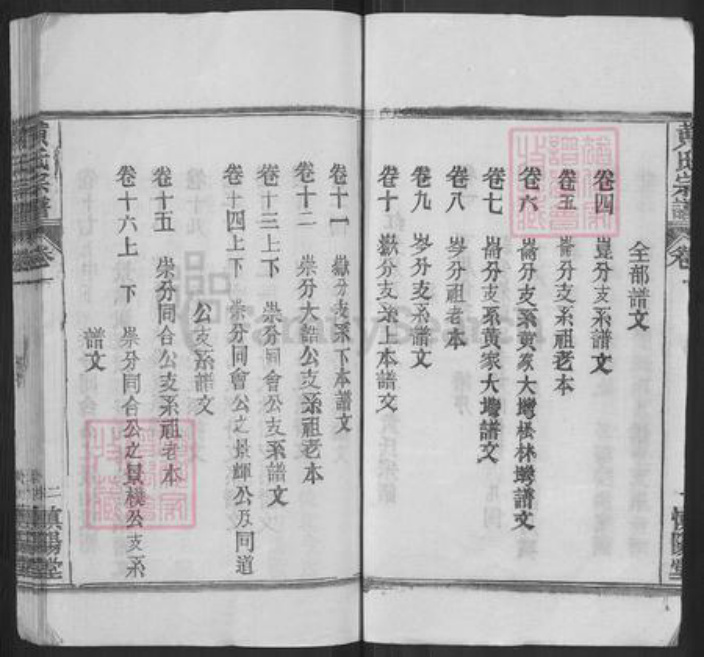 全部譜文
卷四 崑分支系譜文
卷五 崙分支系祖老本
卷六 崙分支系黄家大塆松林塆譜文
卷七 崙分支系黄家大塆譜文
卷八 岑分祖老本
卷九 岑分支系譜文
卷十 嶽分支系上本譜文
卷十一 嶽分支系下本譜文
卷十二 崇分大誥公支系祖老本
卷十三上下 崇分同會公支系譜文
卷十四上下 崇分同會公之景輝公及同道
公支系譜文
卷十五 崇分同合公支系祖老本
卷十六上 下 崇分同合公之景棧公支系
譜文
黄氏宗譜
卷一
二
慎陽堂
FamilySearch